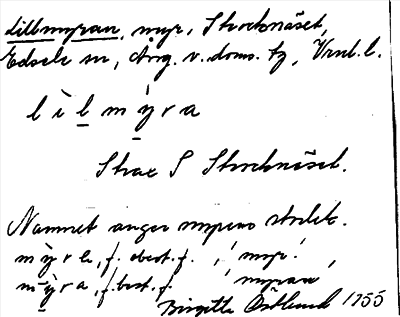 Lillmyran, myr, Stocknäset,
Edsele sn, Ång. v. doms. tg, Vnrl. l.
l i l m ẏ r a
Strax S Stocknäset.
Namnet anger myrens storlek.
m ẏ r e, f. obest. f. 'myr',
m ẏ r a, f. best. f. 'myran'
Birgitta Östlund 1955